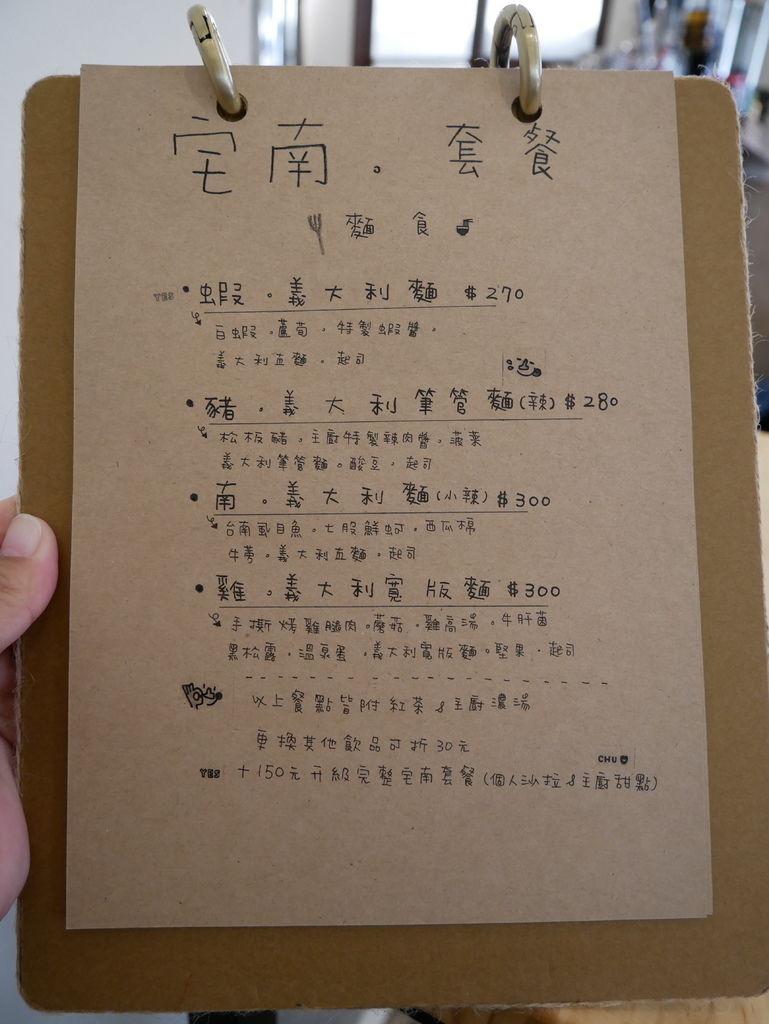 宅南。套餐
麵食
YES 蝦。義大利麵 $270
白蝦。蘆筍。特製蝦醬。
義大利直麵。起司
豬。義大利筆管麵(辣) $280
松板豬。主廚特製辣肉醬。菠菜
義大利筆管麵。酸豆。起司
南。義大利麵(小辣) $300
台南虱目魚。七股鮮蚵。西瓜棉
牛蒡。義大利直麵。起司
雞。義大利寬版麵 $300
手撕烤雞腿肉。蘑菇。雞高湯。牛肝菌
黑松露。溫泉蛋。義大利寬版麵。堅果。起司
以上餐點皆附紅茶&主廚濃湯
更換其他飲品可折30元
CHU
YES +150元升級完整宅南套餐(個人沙拉&主廚甜點)